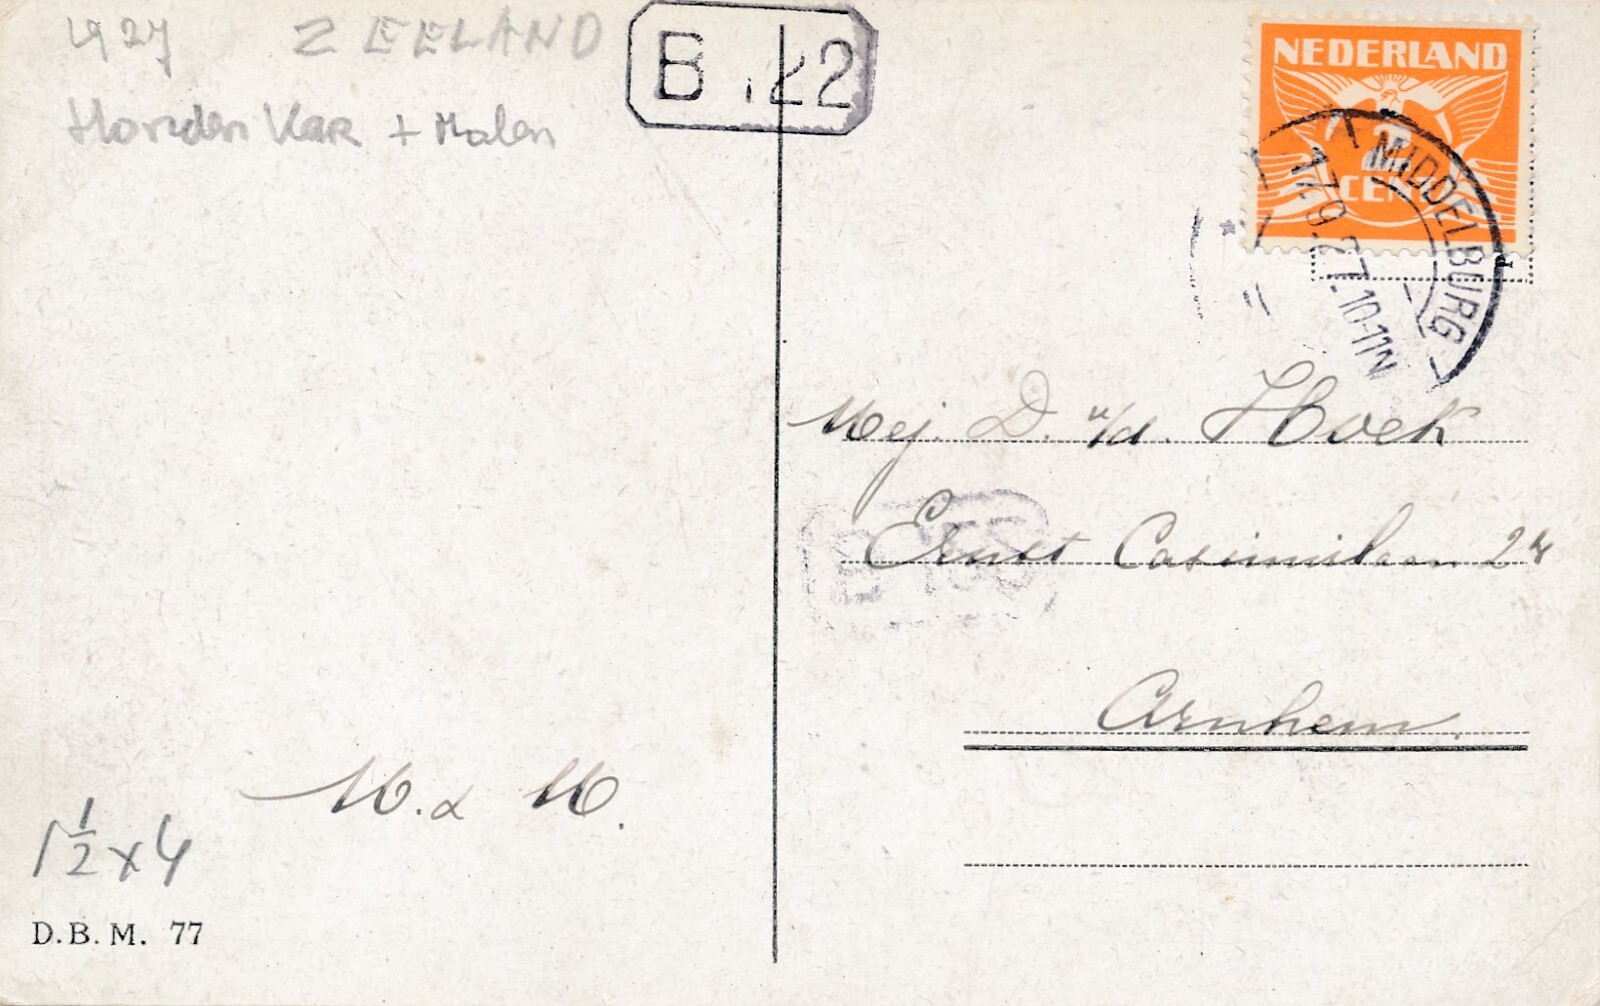 1927 ZEELAND
Honden Kar + Molen
B 122
NEDERLAND
2
CENT
MIDDELBURG
17.9.27.10-11N
Mej. D. v/d. Hoek
Ernst Casimirlaan 24
Arnhem.
M. & M.
1 1/2 x 4
D.B.M. 77